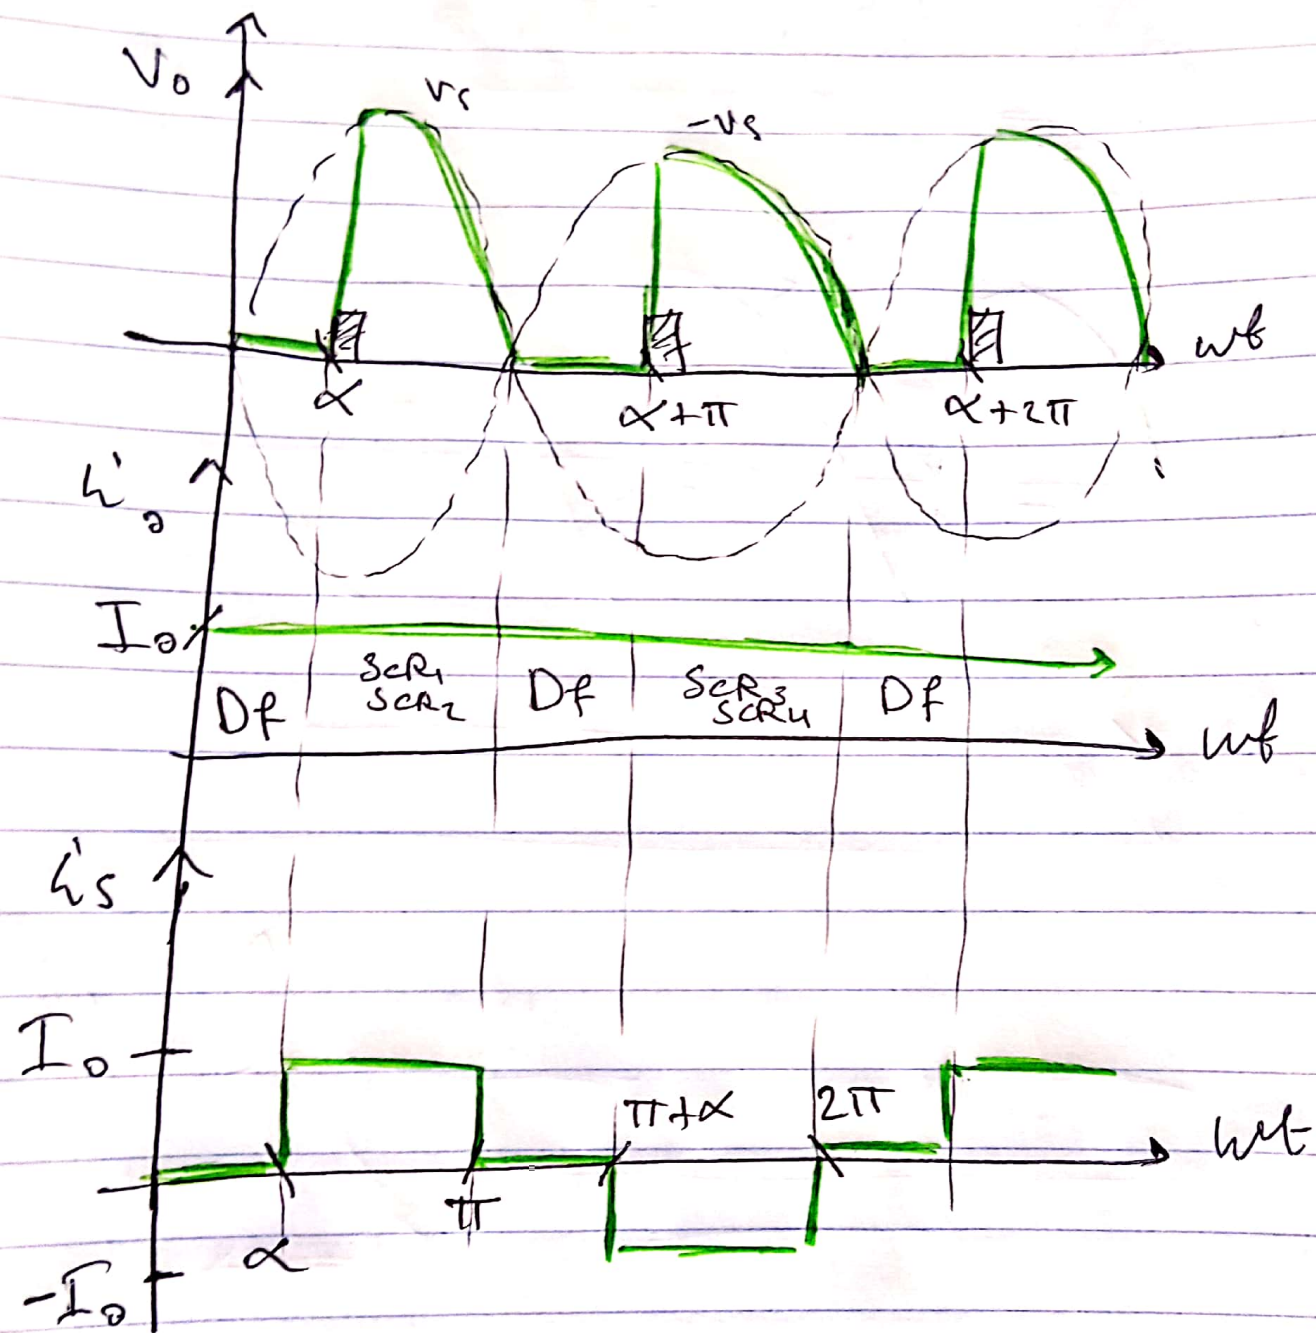 Vo
vs
-vs
wt
α
α+π
α+2π
io
Io
Df
SCR1
SCR2
Df
SCR3
SCR4
Df
wt
is
Io
π+α
2π
wt
π
α
-Io